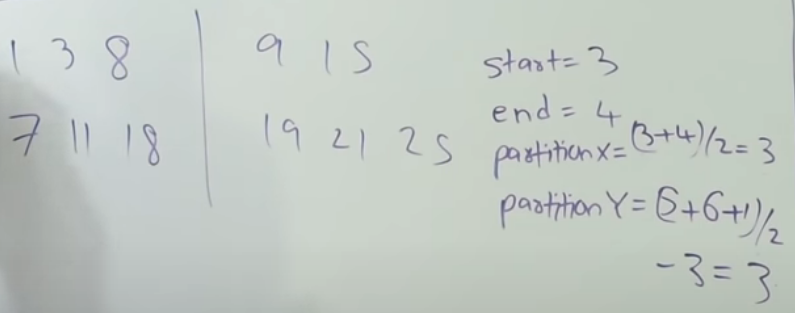 1 3 8 | 9 15
7 11 18 | 19 21 25
start = 3
end = 4
partitionX = (3+4)/2 = 3
partitionY = (5+6+1)/2
-3 = 3